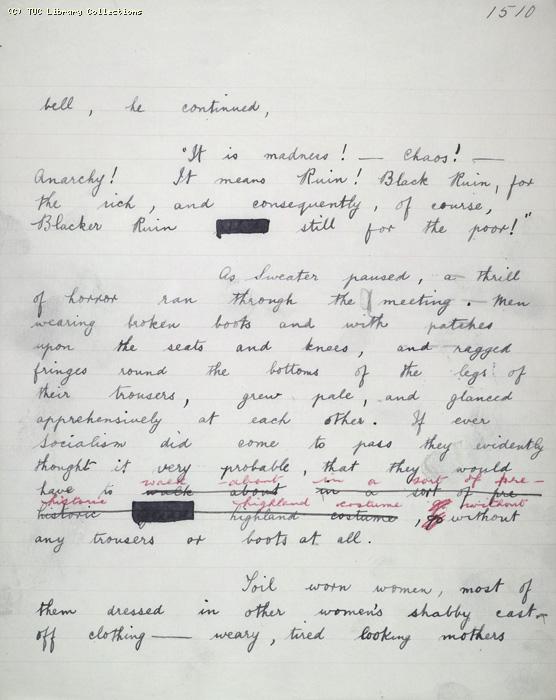 (C) TUC Library Collections
1510
bell, he continued,
"It is madness! — Chaos! —
Anarchy! It means Ruin! Black Ruin, for
the rich, and consequently, of course,
Blacker Ruin still for the poor!"
As Sweater paused, a thrill
of horror ran through the meeting. Men
wearing broken boots and with patches
upon the seats and knees, and ragged
fringes round the bottoms of the legs of
their trousers, grew pale, and glanced
apprehensively at each other. If ever
Socialism did come to pass they evidently
thought it very probable, that they would
walk about in a sort of pre-
have to walk about in a sort of pre-
historic highland costume without
historic highland costume, without
any trousers or boots at all.
Toil worn women, most of
them dressed in other women's shabby cast-
off clothing — weary, tired looking mothers